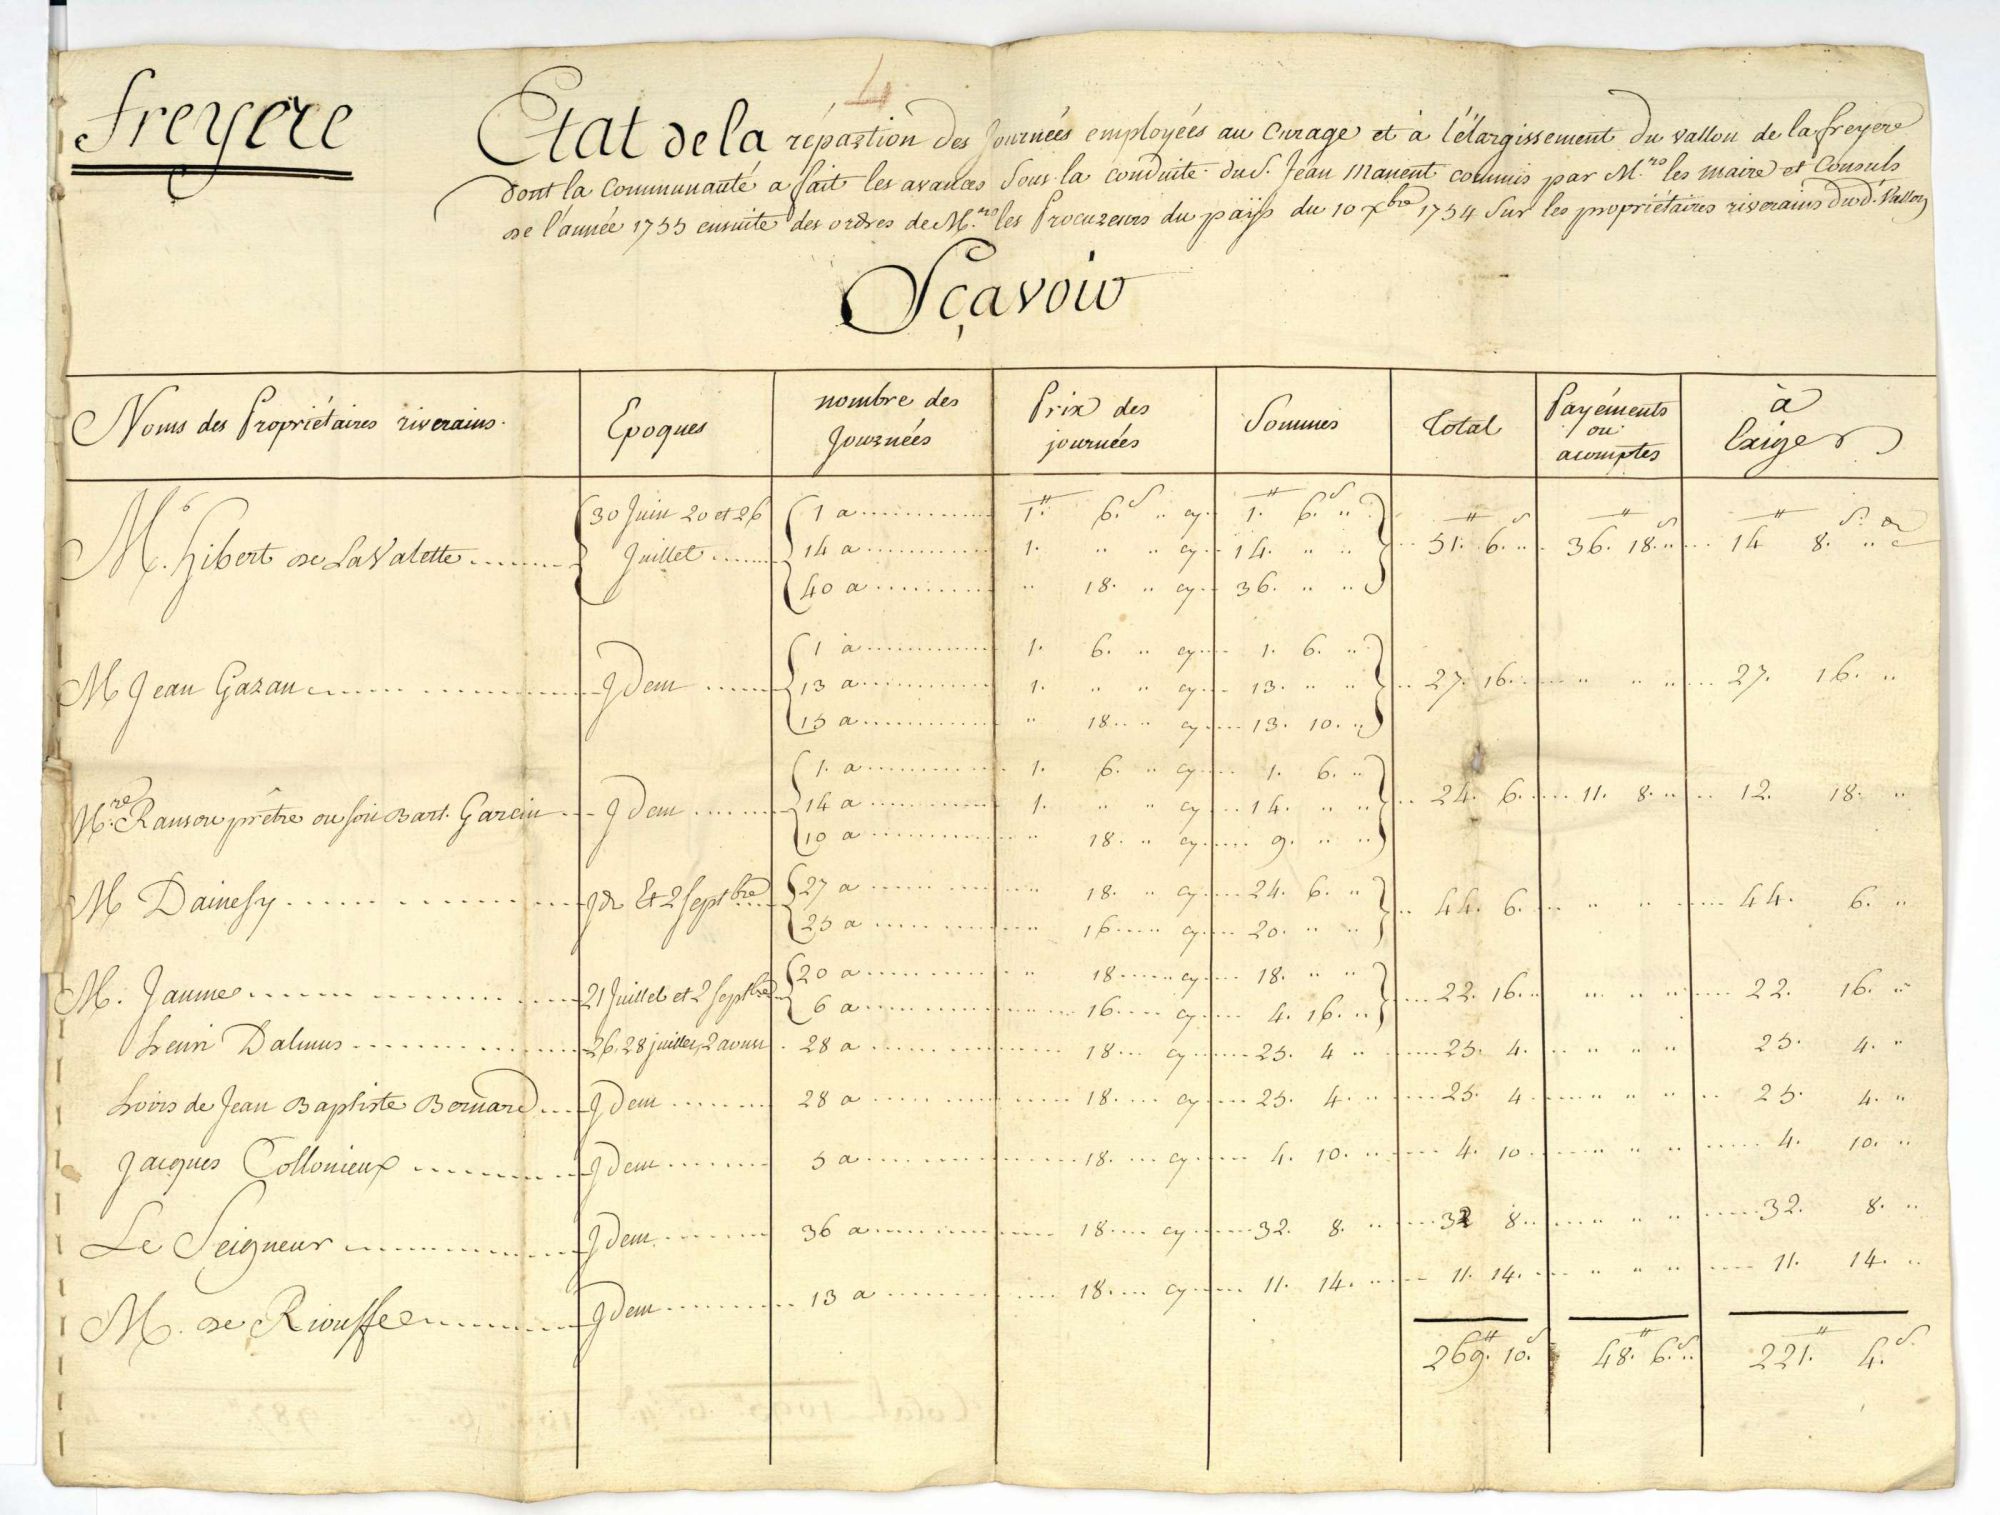 freyere
4
Etat de la répartion des journées employées au curage et à l'élargissement du vallon de la freyere
dont la communauté a fait les avances sous la conduite du S. Jean Manent commis par M.rs les maire et Consuls
de l'année 1755 ensuite des ordres de M.rs les Procureurs du païs du 10 xbre 1754 sur les propriétaires riverains dud. Vallon
Sçavoir
Noms des Propriétaires riverains. Epoques nombre des journées Prix des journées Sommes Total Payéments ou acomptes à Exiger
M.e Gibert de La Valette 30 Juin 20 et 26 Juillet 1 a 1.# 6.s " cy 1.# 6.s " 51.# 6.s " 36.# 18.s " 14# 8.s "
14 a 1. " " cy 14. " "
40 a " 18. " cy 36. " "
M Jean Gazan Jdem 1 a 1. 6. " cy 1. 6. " 27. 16. " " " 27. 16. "
13 a 1. " " cy 13. " "
15 a " 18. " cy 13. 10. "
M.re Ransou prêtre ou soit Bart. Garcin Jdem 1. a 1. 6. " cy 1. 6. " 24. 6. 11. 8. " 12. 18. "
14 a 1. " " cy 14. " "
10 a " 18. " cy 9. " "
M Dainesy Jd. Et 2 Septbre 27 a " 18. " cy 24. 6. " 44. 6. " " 44. 6. "
25 a " 16. " cy 20. " "
M. Jaume 21 Juillet et 2 Septbre 20 a " 18. " cy 18. " " 22. 16. " " " " 22. 16. "
6 a " 16. cy 4. 16. "
henri Dalmus 26. 28 juillet, 2 aoust 28 a 18. cy 25. 4 " 25. 4. " " " 25. 4. "
hoirs de Jean Baptiste Bernard Jdem 28 a 18. cy 25. 4. " 25. 4 " " " 25. 4. "
Jacques Collonieux Jdem 5 a 18. cy 4. 10. " 4. 10 " " " 4. 10. "
Le Seigneur Jdem 36 a 18. cy 32. 8. " 32 8. " " " 32. 8. "
M. de Riouffe Jdem 13 a 18. cy 11. 14. " 11. 14. " " " 11. 14. "
269.# 10.s 48.# 6.s " 221.# 4.s